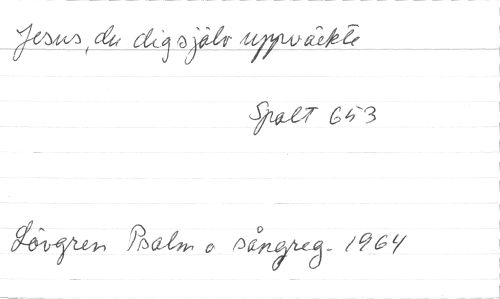 Jesus, du dig själv uppväckte
Spalt 653
Lövgren Psalm o sångreg. 1964